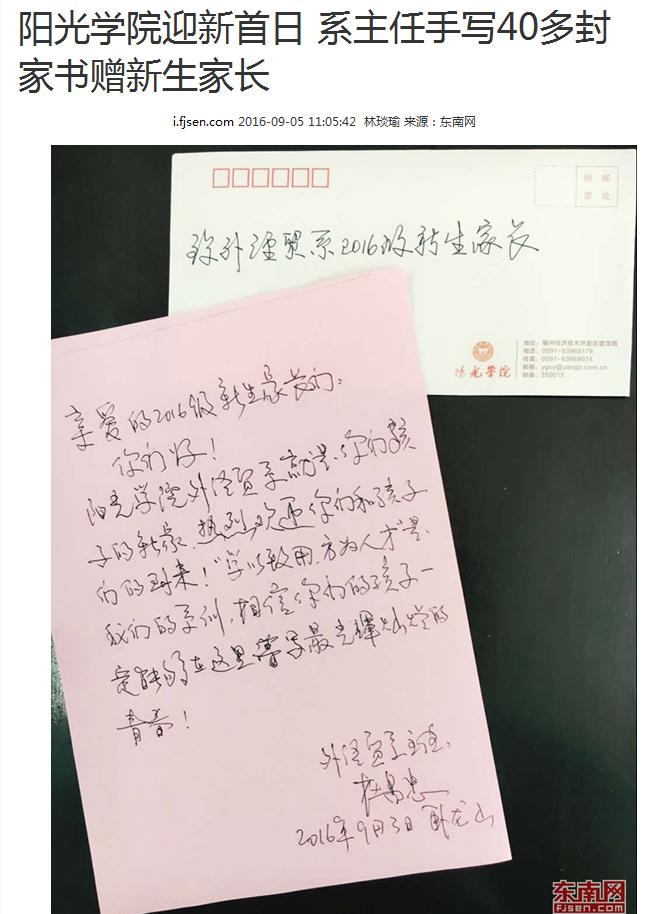 阳光学院迎新首日 系主任手写40多封
家书赠新生家长
i.fjsen.com 2016-09-05 11:05:42 林琰瑜 来源：东南网
贴 邮
票 处
致外经贸系2016级新生家长
阳光学院
地址：福州经济技术开发区登龙路
电话：0591-83969178
传真：0591-83969074
邮箱：ygxy@yango.com.cn
邮编：350015
亲爱的2016级新生家长们：
你们好！
阳光学院外经贸系就是你们孩
子的新家，热烈欢迎你们和孩子
们的到来！"学以致用，方为人才"是
我们的系训，相信你们的孩子一
定能够在这里谱写最光辉灿烂的
青春！
外经贸系主任：
杜昌忠
2016年9月3日 卧龙山
东南网
fjsen.com